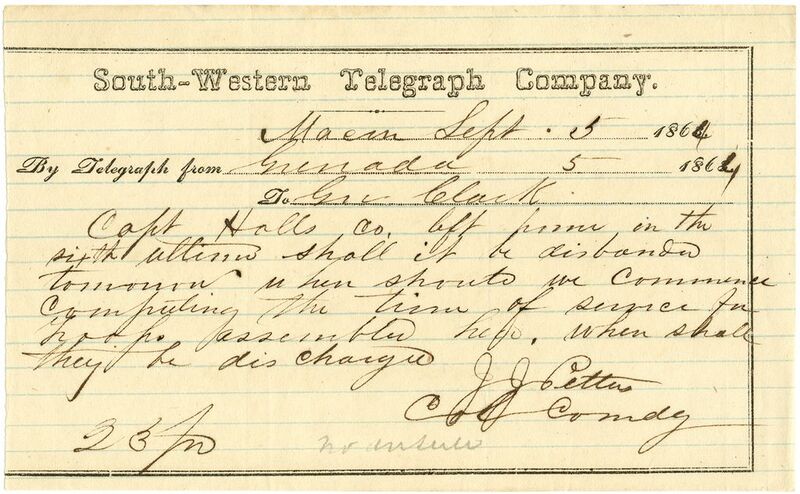 South-Western Telegraph Company.
Macon Sept. 5 1864
By Telegraph from Grenada 5 1864
To Gov Clark
Capt Halls co. left home in the
sixth ultimo shall it be disbanded
tomorrow when should we commence
computing the time of service for
troops assembled here. when shall
they be discharged
J J Pettus
Col Comdg
33 pd
no answer